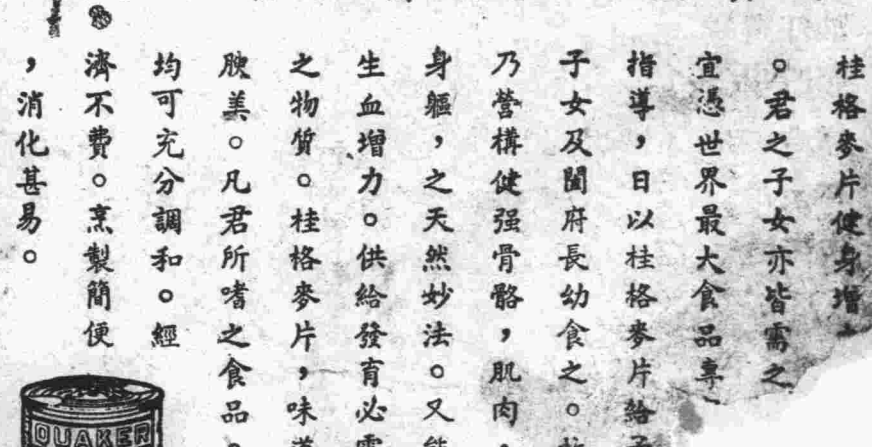 桂格麥片健身增
。君之子女亦皆需之
宜憑世界最大食品專
指導，日以桂格麥片給
子女及闔府長幼食之。
乃營構健强骨骼，肌肉，
身軀，之天然妙法。又能
生血增力。供給發育必需
之物質。桂格麥片，味
腴美。凡君所嗜之食品。
均可充分調和。經
濟不費。烹製簡便
，消化甚易。
QUAKER